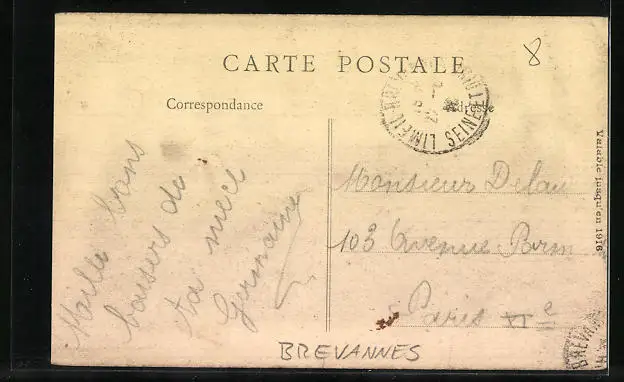 CARTE POSTALE
Correspondance
Adresse
8
LIMEIL BREVA
SEINE ET OISE
Mille bons
baisers de
ta niece
Germaine
Monsieur Delau
103 Avenue Parm
Paris XIe
BREVANNES
Valable jusqu'en 1916
BREVAN